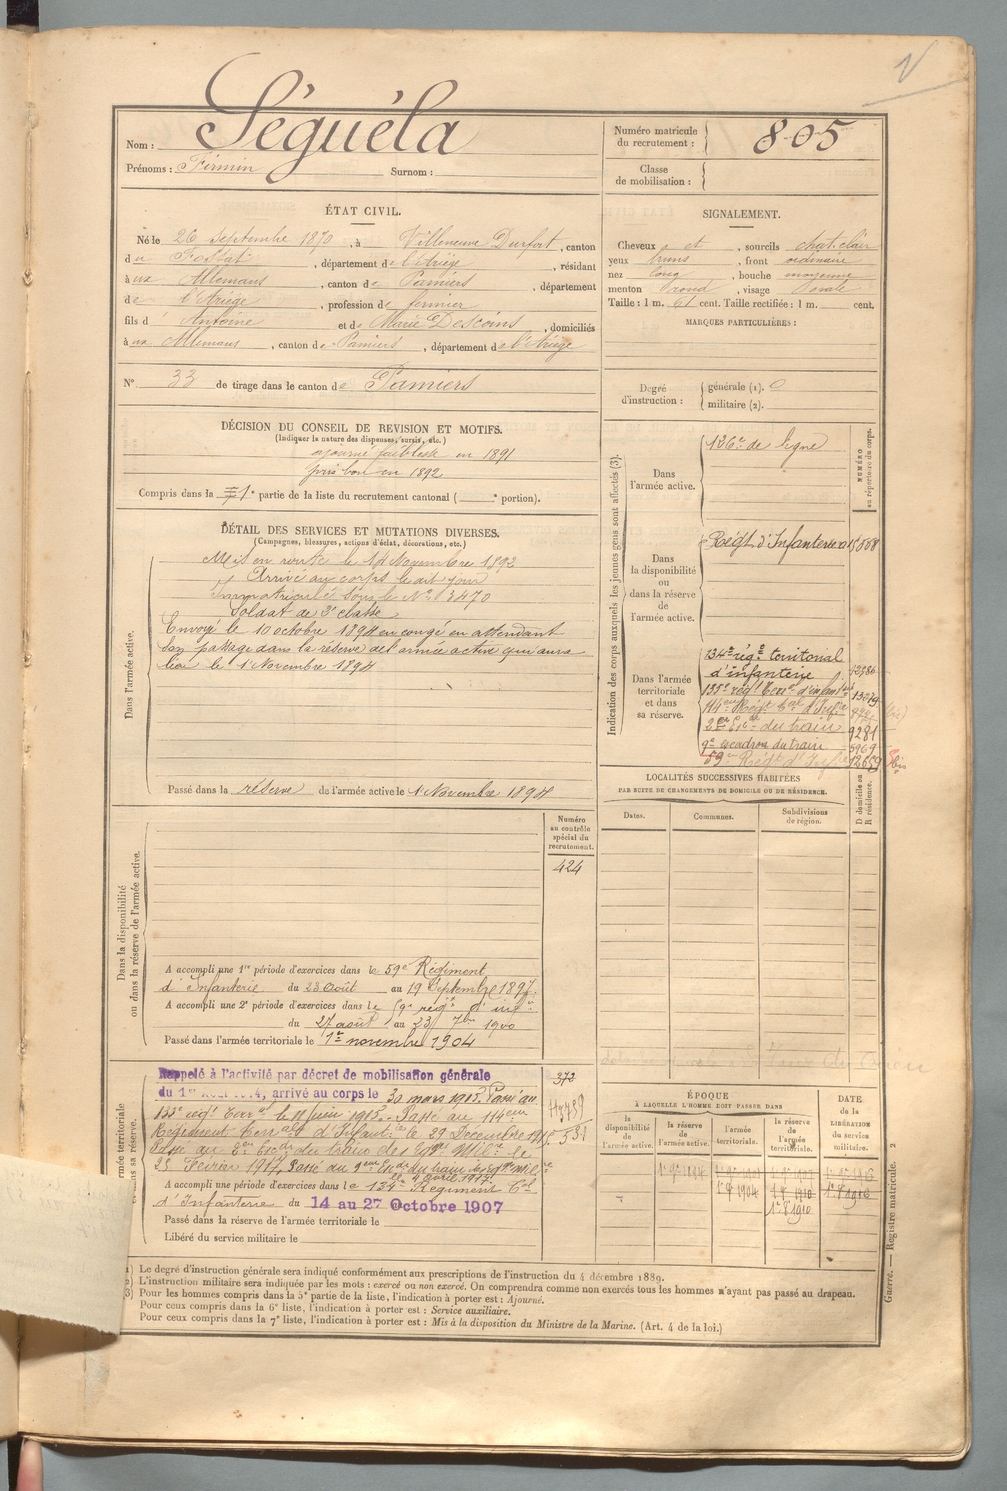 Nom : Séguéla
Prénoms : Firmin Surnom :
Numéro matricule du recrutement : 805
Classe de mobilisation :
ÉTAT CIVIL.
Né le 26 Septembre 1870, à Villeneuve Durfort, canton
du Fossat, département de l'Ariège, résidant
à ux Allemans, canton de Pamiers, département
de l'Ariège, profession de fermier
fils d' Antoine et de Marie Descoins, domiciliés
à ux Allemans, canton de Pamiers, département de l'Ariège
N° 33 de tirage dans le canton de Pamiers
SIGNALEMENT.
Cheveux et, sourcils chat. clair
yeux bruns, front ordinaire
nez long, bouche moyenne
menton rond, visage ovale
Taille : 1 m. 61 cent. Taille rectifiée : 1 m. cent.
MARQUES PARTICULIÈRES :
Degré d'instruction : générale (1). 0
militaire (2).
DÉCISION DU CONSEIL DE REVISION ET MOTIFS.
(Indiquer la nature des dispenses, sursis, etc.)
ajourné faiblesse en 1891
pris bon en 1892
Compris dans la 1e partie de la liste du recrutement cantonal ( e portion).
DÉTAIL DES SERVICES ET MUTATIONS DIVERSES.
(Campagnes, blessures, actions d'éclat, décorations, etc.)
Dans l'armée active.
Mis en route le 14 Novembre 1892
Arrivé au corps le dit jour
Immatriculé sous le N° 3470
Soldat de 2e classe
Envoyé le 10 octobre 1894 en congé en attendant
son passage dans la réserve de l'armée active qui aura
lieu le 1er Novembre 1894
Passé dans la réserve de l'armée active le 1 Novembre 1894
Indication des corps auxquels les jeunes gens sont affectés (3).
NUMÉRO au répertoire du corps.
Dans l'armée active.
126e de ligne
Dans la disponibilité ou dans la réserve de l'armée active.
Régt d'Infanterie
Dans l'armée territoriale et dans sa réserve.
134e rég.t territorial
d'infanterie
135e régt Terr.al d'infant.ie 13079
114eme Régt T.al d'Inf.ie
2eme Esc.on du train 9281
9e escadron du train 5969
59e Régt d'Inf.ie 12659
LOCALITÉS SUCCESSIVES HABITÉES
PAR SUITE DE CHANGEMENTS DE DOMICILE OU DE RÉSIDENCE.
Dates. Communes. Subdivisions de région. D domicile ou R résidence.
Dans la disponibilité ou dans la réserve de l'armée active.
Numéro au contrôle spécial du recrutement.
424
A accompli une 1re période d'exercices dans le 59e Régiment
d'Infanterie du 23 Août au 19 Septembre 1897.
A accompli une 2e période d'exercices dans le 59e rég.t d'inf.ie
du 27 août au 23 7bre 1900
Passé dans l'armée territoriale le 1er novembre 1904
Rappelé à l'activité par décret de mobilisation générale
du 1er Août 1914, arrivé au corps le 30 mars 1915. Passé au
135e régt Terr.al le 11 Juin 1915. Passé au 114eme
Régiment Terr.al d'Infant.ie le 29 Décembre 1915
Passé au 2em Esc.on du train des Eq. Mil.res le
25 Février 1917. Passé au 9eme Esc.on du train des Eq. Mil.
le 4 avril 1917.
372
A accompli une période d'exercices dans le 134e Régiment T.al
d'Infanterie du 14 au 27 Octobre 1907
Passé dans la réserve de l'armée territoriale le
Libéré du service militaire le
ÉPOQUE
À LAQUELLE L'HOMME DOIT PASSER DANS
la disponibilité de l'armée active. la réserve de l'armée active. l'armée territoriale. la réserve de l'armée territoriale.
DATE de la LIBÉRATION du service militaire.
(1) Le degré d'instruction générale sera indiqué conformément aux prescriptions de l'instruction du 4 décembre 1889.
2) L'instruction militaire sera indiquée par les mots : exercé ou non exercé. On comprendra comme non exercés tous les hommes n'ayant pas passé au drapeau.
(3) Pour les hommes compris dans la 5e partie de la liste, l'indication à porter est : Ajourné.
Pour ceux compris dans la 6e liste, l'indication à porter est : Service auxiliaire.
Pour ceux compris dans la 7e liste, l'indication à porter est : Mis à la disposition du Ministre de la Marine. (Art. 4 de la loi.)
Guerre. — Registre matricule. 2